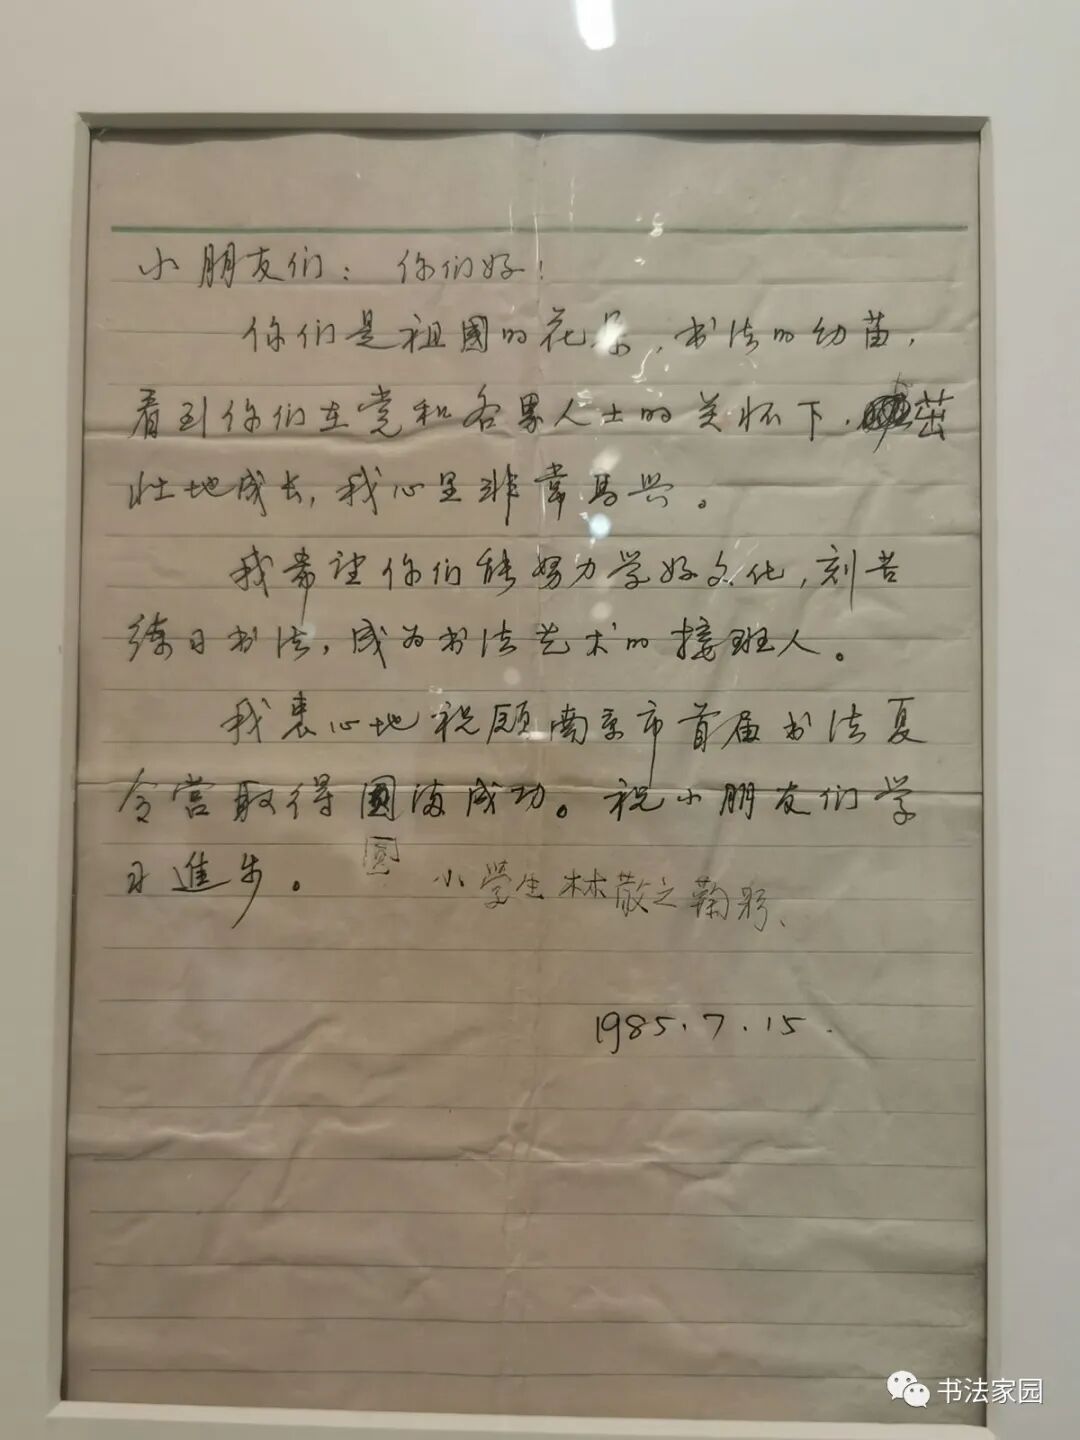 小朋友们：你们好！
你们是祖國的花朵，书法的幼苗，
看到你们在党和各界人士的关怀下，茁
壮地成长，我心里非常高兴。
我希望你们能努力学好文化，刻苦
练习书法，成为书法艺术的接班人。
我衷心地祝愿南京市首届书法夏
令营取得圆满成功。祝小朋友们学
习進步。
圓
小学生林散之鞠躬、
1985.7.15.
书法家园